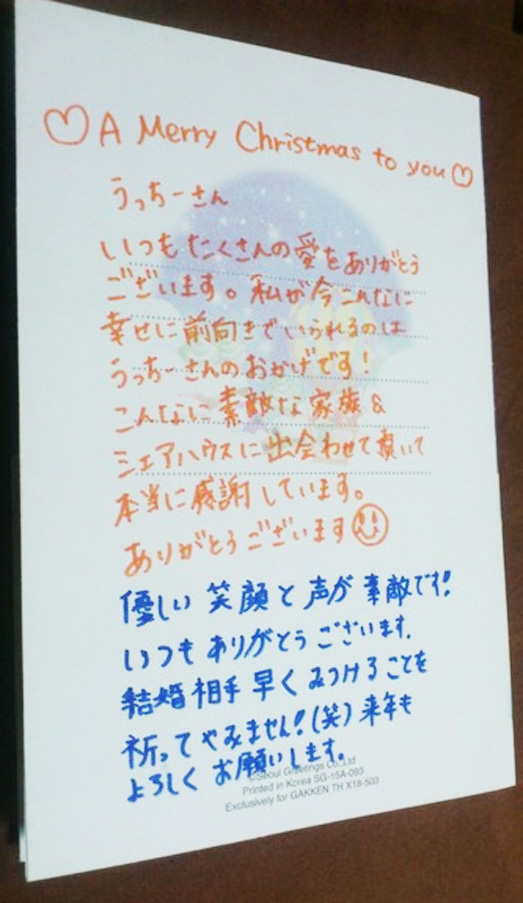 ♡ A Merry Christmas to you ♡
うっちーさん
いつもたくさんの愛をありがとう
ございます。私が今こんなに
幸せに前向きでいられるのは
うっちーさんのおかげです!
こんなに素敵な家族&
シェアハウスに出会わせて頂いて
本当に感謝しています。
ありがとうございます
優しい笑顔と声が素敵です!
いつもありがとうございます.
結婚相手早くみつけることを
祈ってやみません!(笑)来年も
よろしくお願いします。
©Seoul Greetings Co.,Ltd
Printed in Korea SG-15A-093
Exclusively for GAKKEN TH X18-503